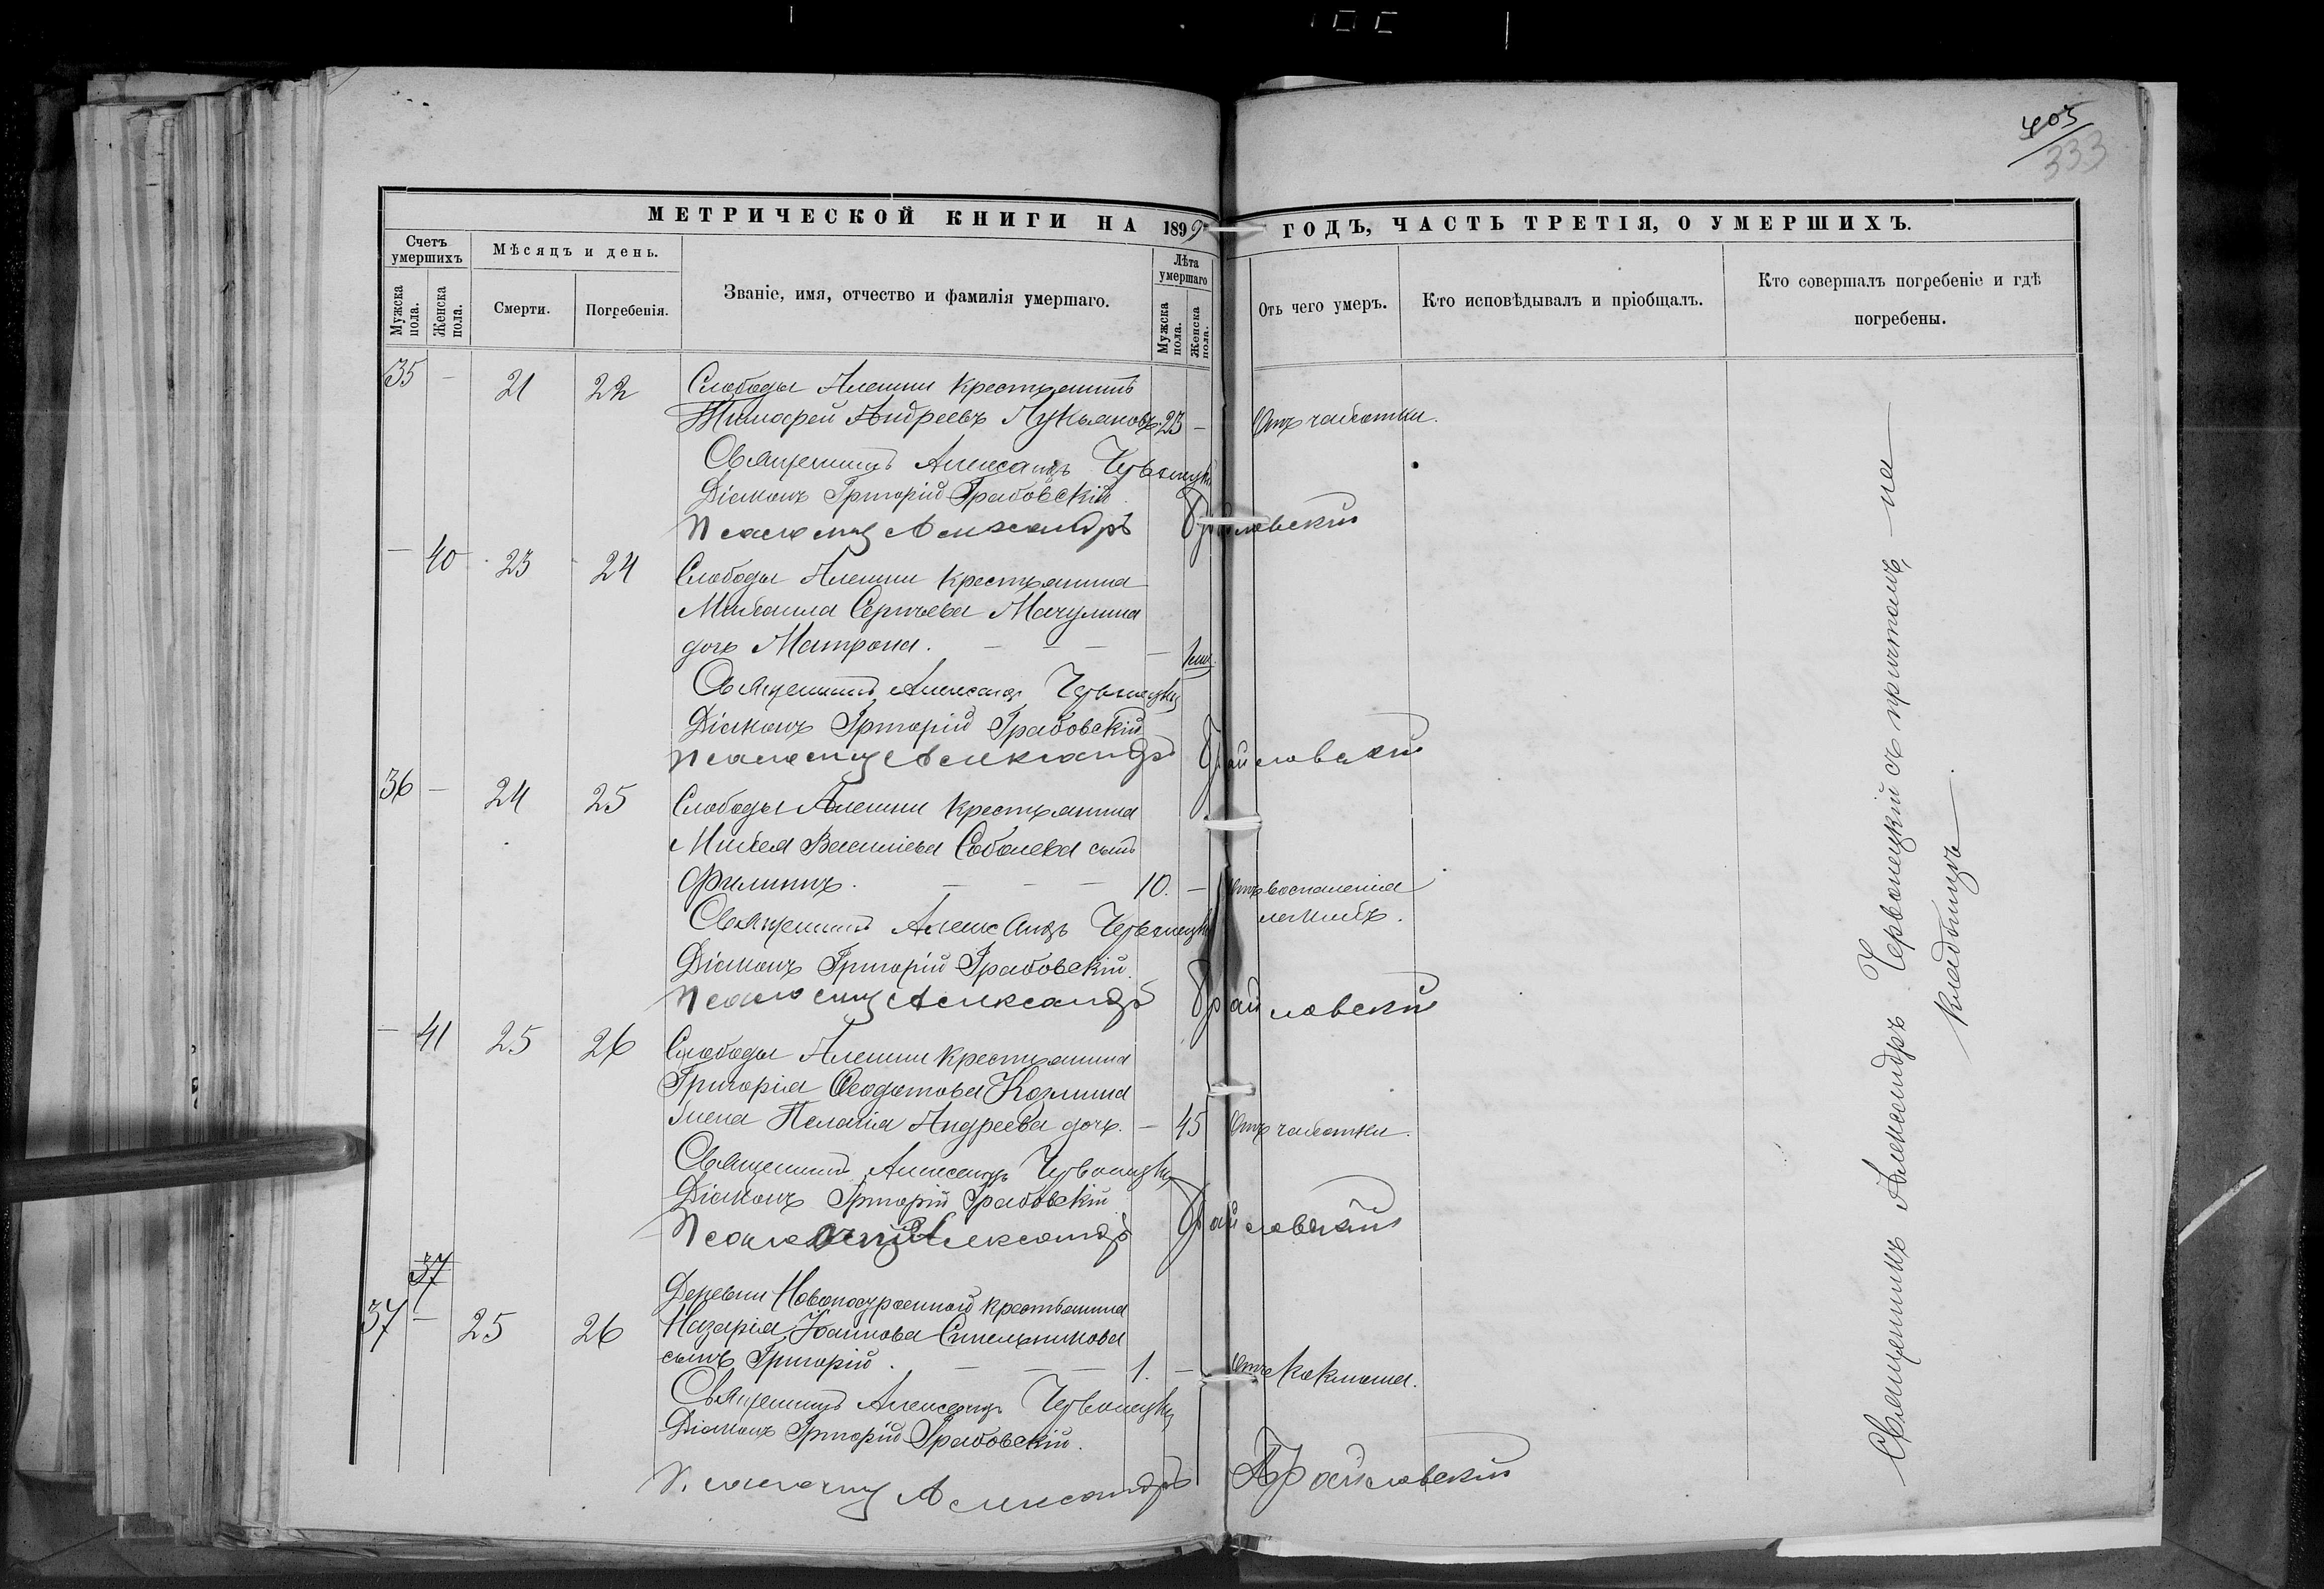 405
333
МЕТРИЧЕСКОЙ КНИГИ НА 1899 ГОДЪ, ЧАСТЬ ТРЕТІЯ, О УМЕРШИХЪ.
Счетъ умершихъ
Мужска пола.
Женска пола.
Мѣсяцъ и день.
Смерти.
Погребенія.
Званіе, имя, отчество и фамилія умершаго.
Лѣта умершаго
Мужска пола.
Женска пола.
Отъ чего умеръ.
Кто исповѣдывалъ и пріобщалъ.
Кто совершалъ погребеніе и гдѣ
погребены.
35 - 21 22 Слободы Алешни крестьянинъ
Тимофей Андреевъ Лукьяновъ. 23 - Отъ чахотки.
Священникъ Александръ Червонецкій
Діаконъ Григорій Грабовскій
Псаломщ Александръ Браиловскій
- 40 23 24 Слободы Алешни крестьянина
Михаила Сергѣева Мачулина
дочь Матрона. - - - -
Священникъ Александръ Червонецкій
Діаконъ Григорій Грабовскій
Псаломщ Александръ Браиловскій
36 - 24 25 Слободы Алешни крестьянина
Михея Василіева Соболева сынъ
Филиппъ. - - - 10. - Отъ воспаленія
легкихъ.
Священникъ Александръ Червонецкій
Діаконъ Григорій Грабовскій.
Псаломщ Александръ Браиловскій
- 41 25 26 Слободы Алешни крестьянина
Григорія Ѳеодотова Козлина
жена Пелагія Андреева дочь. - 45 Отъ чахотки.
Священникъ Александръ Червонецкій
Діаконъ Григорій Грабовскій
Псаломщ Александръ Браиловскій
37
37 - 25 26 Деревни Новопостроенной крестьянина
Назарія Іоаннова Стельникова
сынъ Григорій. - - - 1. - Отъ коклюша.
Священникъ Александръ Червонецкій
Діаконъ Григорій Грабовскій.
Псаломщ Александръ Браиловскій
Священникъ Александръ Червонецкій съ причтомъ, на
кладбищѣ